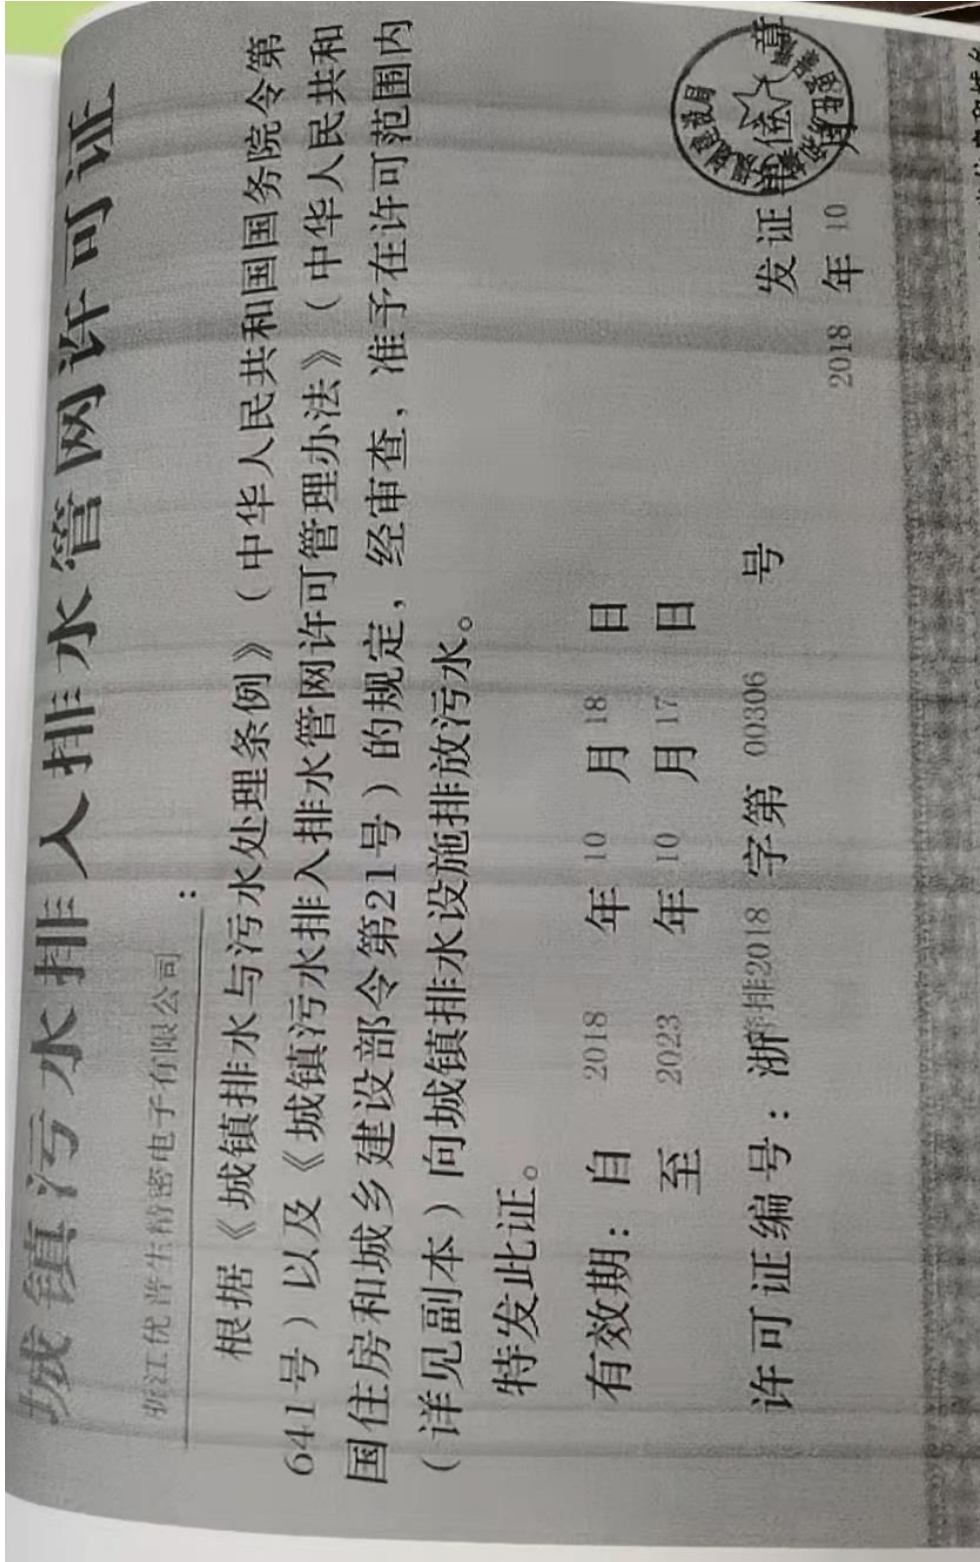 城镇污水排入排水管网许可证
浙江优普生精密电子有限公司：
根据《城镇排水与污水处理条例》（中华人民共和国国务院令第
641号）以及《城镇污水排入排水管网许可管理办法》（中华人民共和
国住房和城乡建设部令第21号）的规定，经审查，准予在许可范围内
（详见副本）向城镇排水设施排放污水。
特发此证。
有效期：自 2018 年 10 月 18 日
至 2023 年 10 月 17 日
许可证编号：浙 排2018 字第 00306 号
发证单位 章
2018 年 10 月